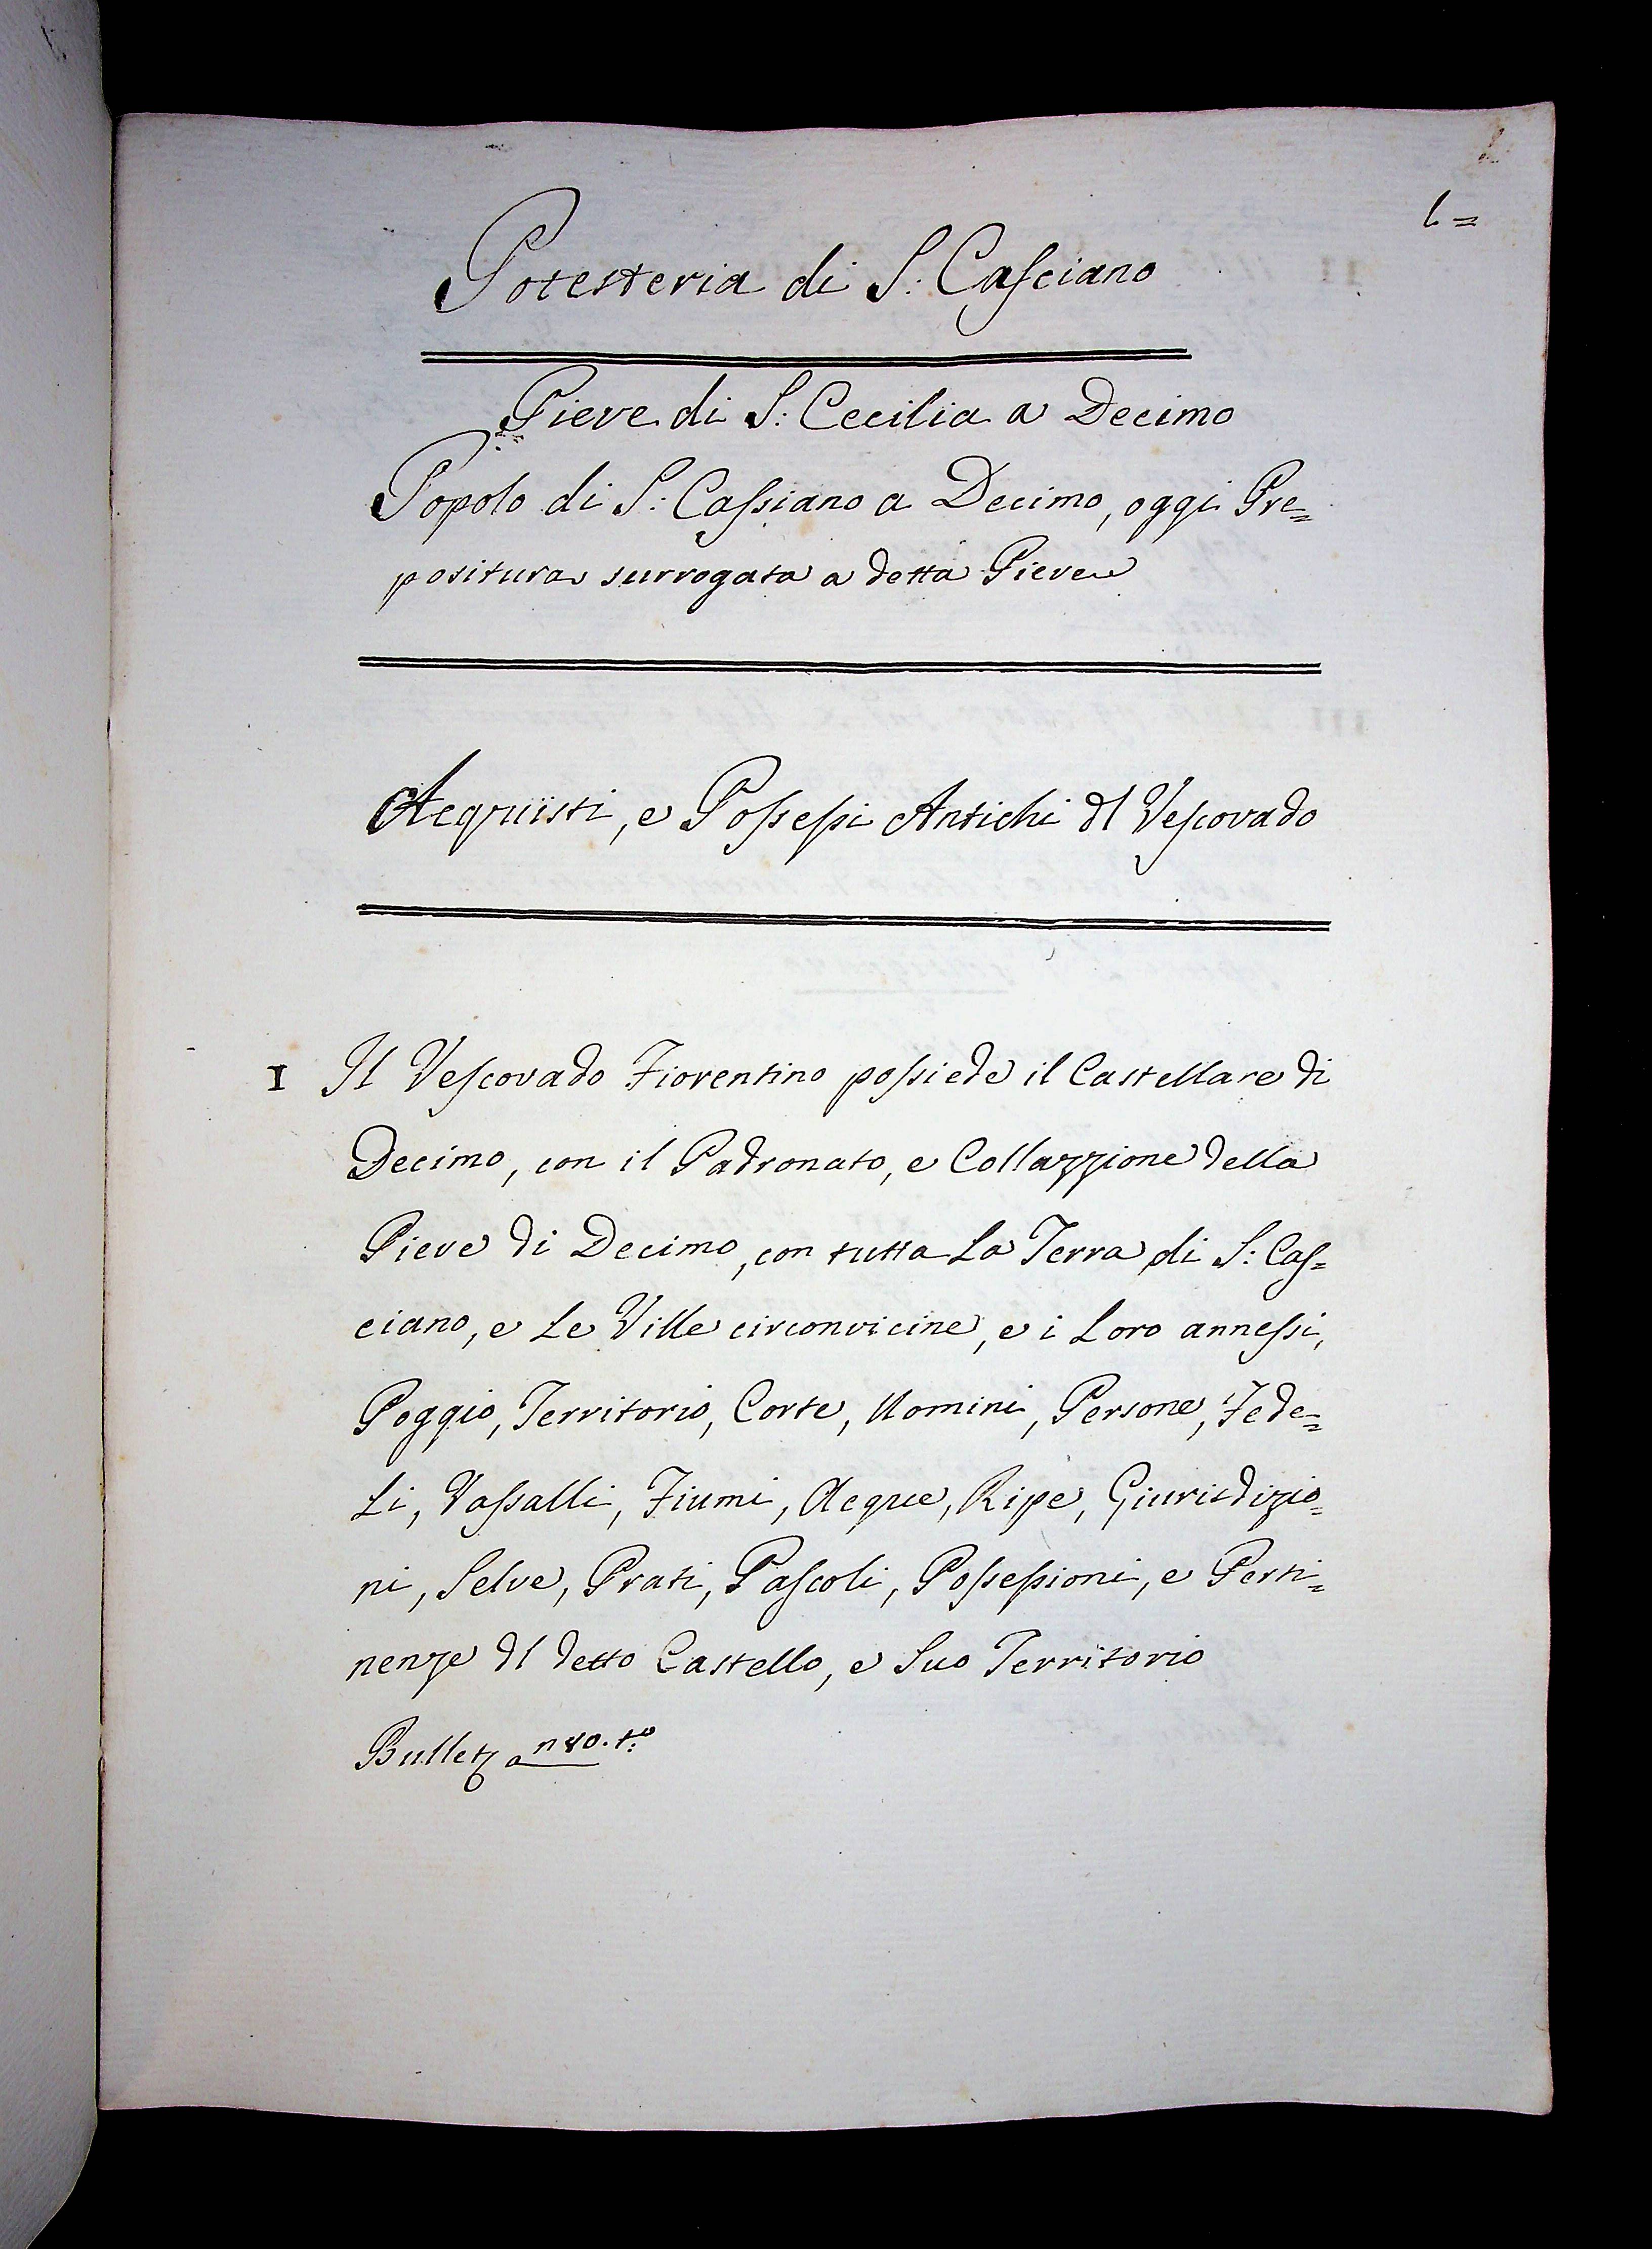 1=
Potesteria di S: Casciano
Pieve di S: Cecilia a Decimo
Popolo di S: Cassiano a Decimo, oggi Pre=
positura surrogata a detta Pieve
Acquisti, e Possessi Antichi dl Vescovado
I Il Vescovado Fiorentino possiede il Castellare di
Decimo, con il Padronato, e Collazzione della
Pieve di Decimo, con tutta La Terra di S: Cas=
ciano, e Le Ville circonvicine, e i Loro annessi,
Poggio, Territorio, Corte, Uomini, Persone, Fede=
Li, Vassalli, Fiumi, Acque, Ripe, Giurisdizio=
ni, Selve, Prati, Pascoli, Possessioni, e Perti=
nenze dl detto Castello, e Suo Territorio
Bullet a